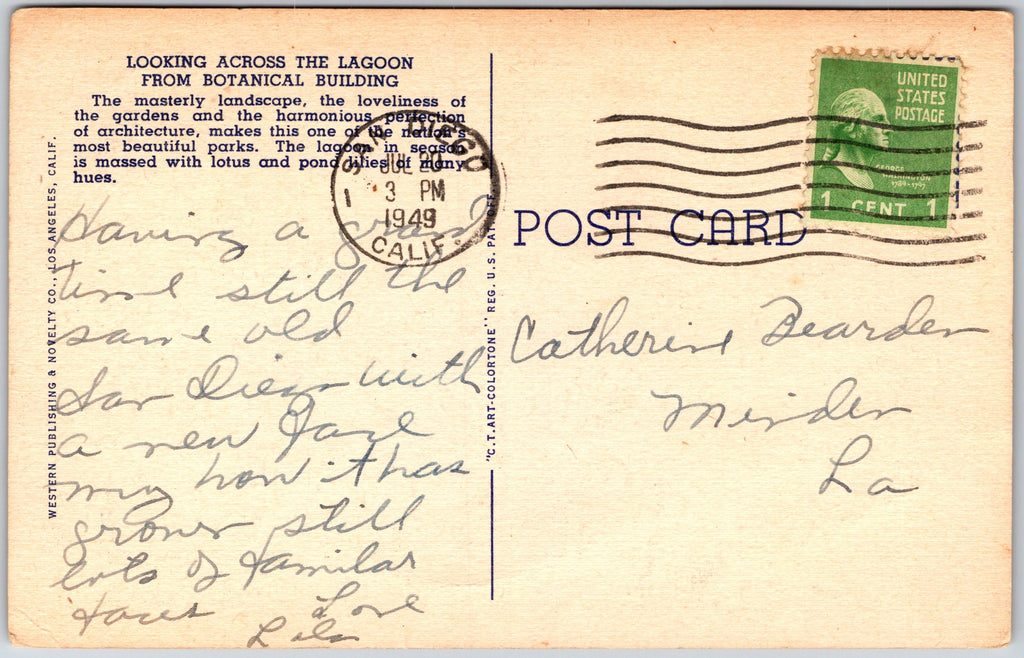 LOOKING ACROSS THE LAGOON
FROM BOTANICAL BUILDING
The masterly landscape, the loveliness of
the gardens and the harmonious perfection
of architecture, makes this one of the nation's
most beautiful parks. The lagoon in season
is massed with lotus and pond lilies of many
hues.
WESTERN PUBLISHING & NOVELTY CO., LOS ANGELES, CALIF.
"C.T. ART-COLORTONE" REG. U.S. PAT. OFF.
SAN DIEGO
JUL 20
3 PM
1949
CALIF.
1
UNITED
STATES
POSTAGE
GEORGE
WASHINGTON
1789-1797
1 CENT 1
POST CARD
Having a grand
time still the
same old
San Diego with
a new face
my how it has
grown still
lots of familar
faces Love
Lila
Catherine Bearden
Minden
La